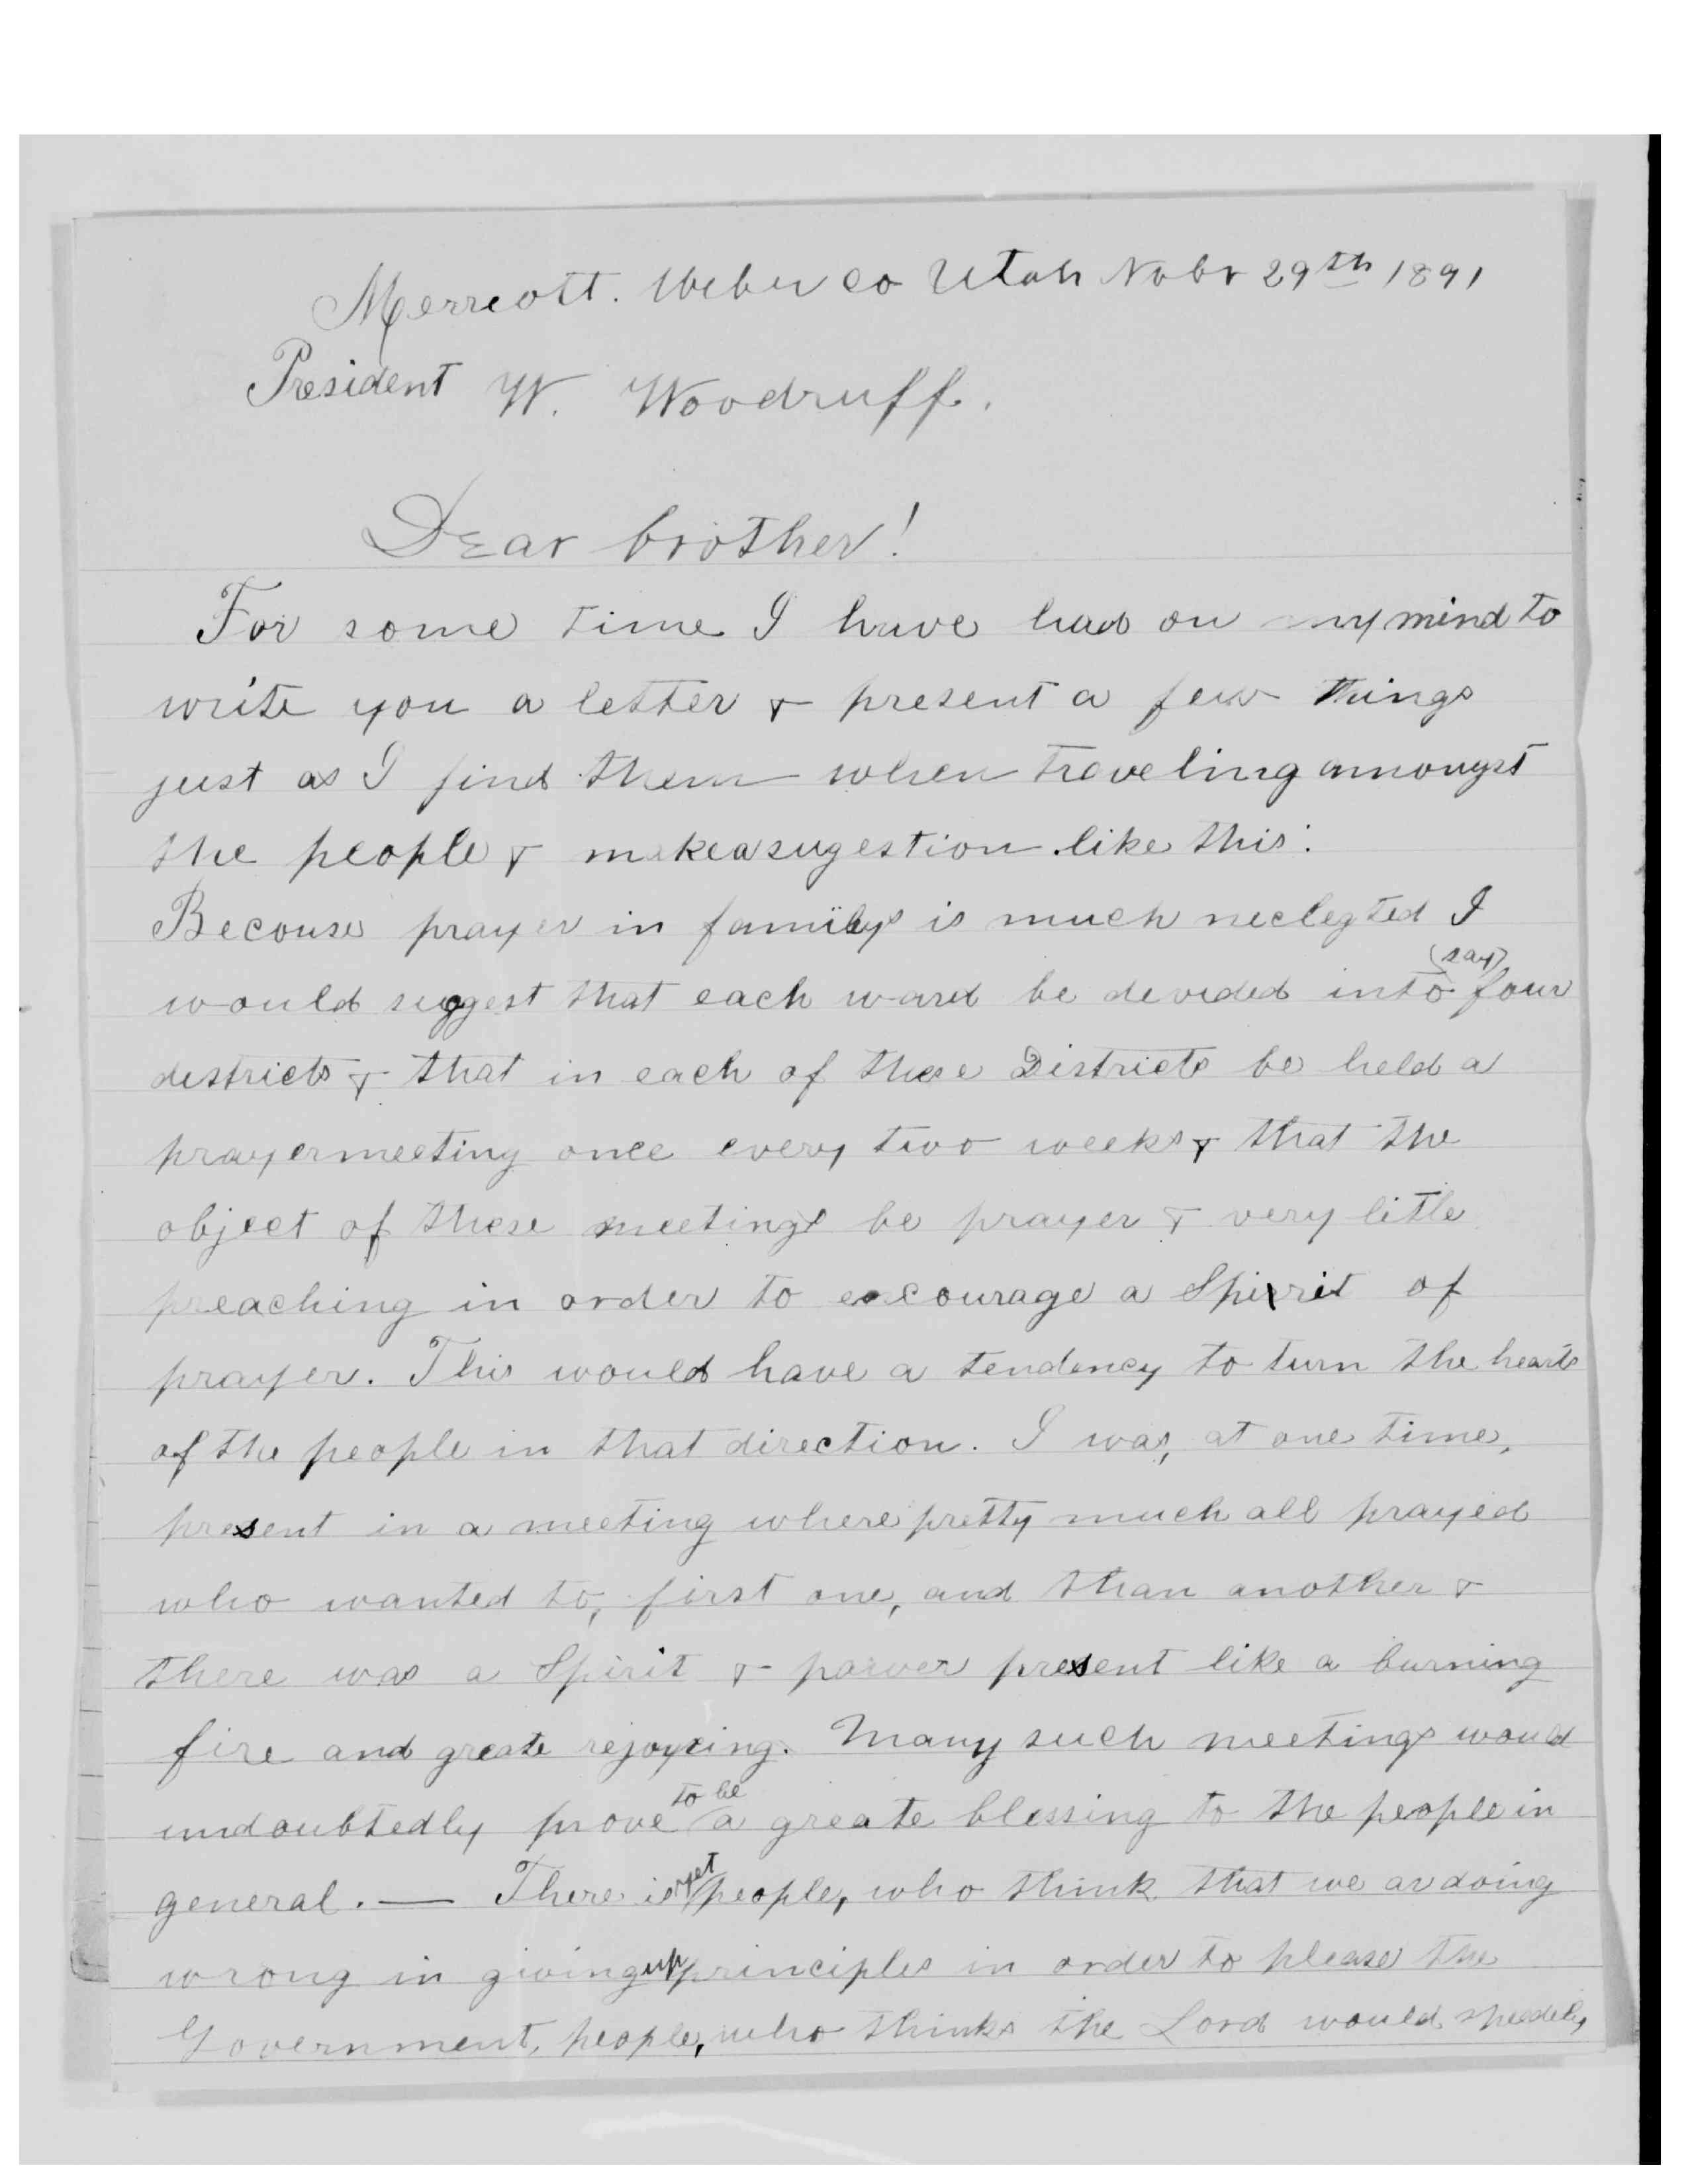 Merrcott. Weber co Utah Nobr 29th 1891
President W. Woodruff.
Dear brother!
For some time I have had on my mind to
write you a letter & present a few things
just as I find them when traveling amongst
the people & make a sugestion like this:
Becouse prayer in familys is much neclegted I
would suggest that each ward be devided into (say) four
destricts & that in each of these Districts be held a
prayermeeting once every two weeks & that the
object of these meetings be prayer & very litle
preaching in order to encourage a Spirit of
prayer. This would have a tendency to turn the hearts
of the people in that direction. I was, at one time,
present in a meeting where pretty much all prayed
who wanted to, first one, and than another &
there was a Spirit & power present like a burning
fire and greate rejoycing. Many such meetings would
undoubtedly prove to be a greate blessing to the people in
general. — There is yet people, who think that we ar doing
wrong in giving up principles in order to please the
Government, people, who thinks the Lord would speedily